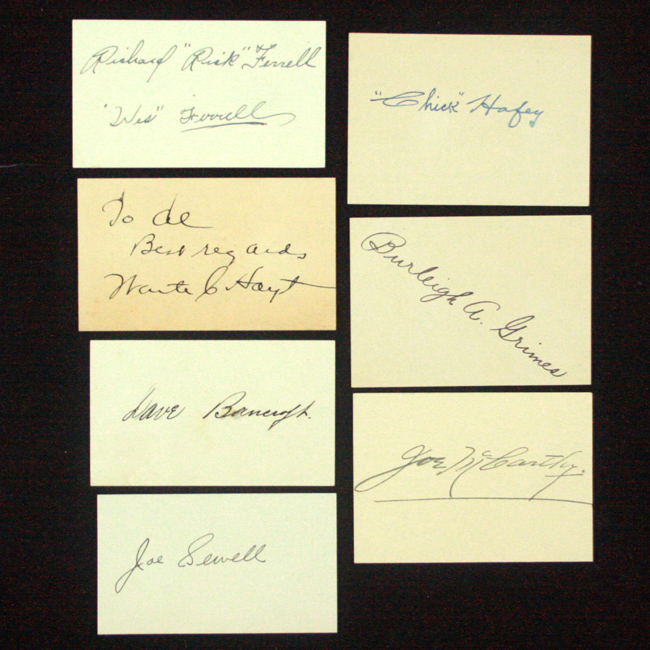 Richard "Rick" Ferrell
"Wes" Ferrell
To Al
Best regards
Waite C Hoyt
Dave Bancroft.
Joe Sewell
"Chick" Hafey
Burleigh A. Grimes
Joe McCarthy.